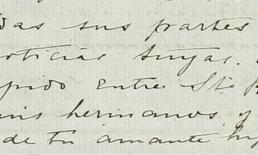 das sus partes
noticias suyas.
pido entre Sto
mis hermanos y
de tu amante